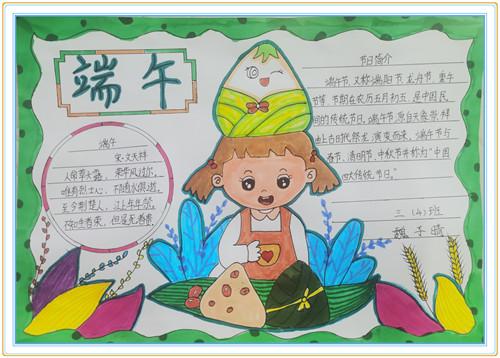 端午
端午
宋·文天祥
人命草头露,荣华风过尔。
唯有烈士心,不随水俱逝。
至今荆楚人,江上年年祭。
不知生者荣,但知死者贵。
节日简介
端午节,又称端阳节、龙舟节、重午
节等,节期在农历五月初五,是中国民
间的传统节日。端午节源自天象崇拜,
由上古时代祭龙演变而来。端午节与
春节、清明节、中秋节并称为"中国
四大传统节日。"
三、(4)班
魏子晴